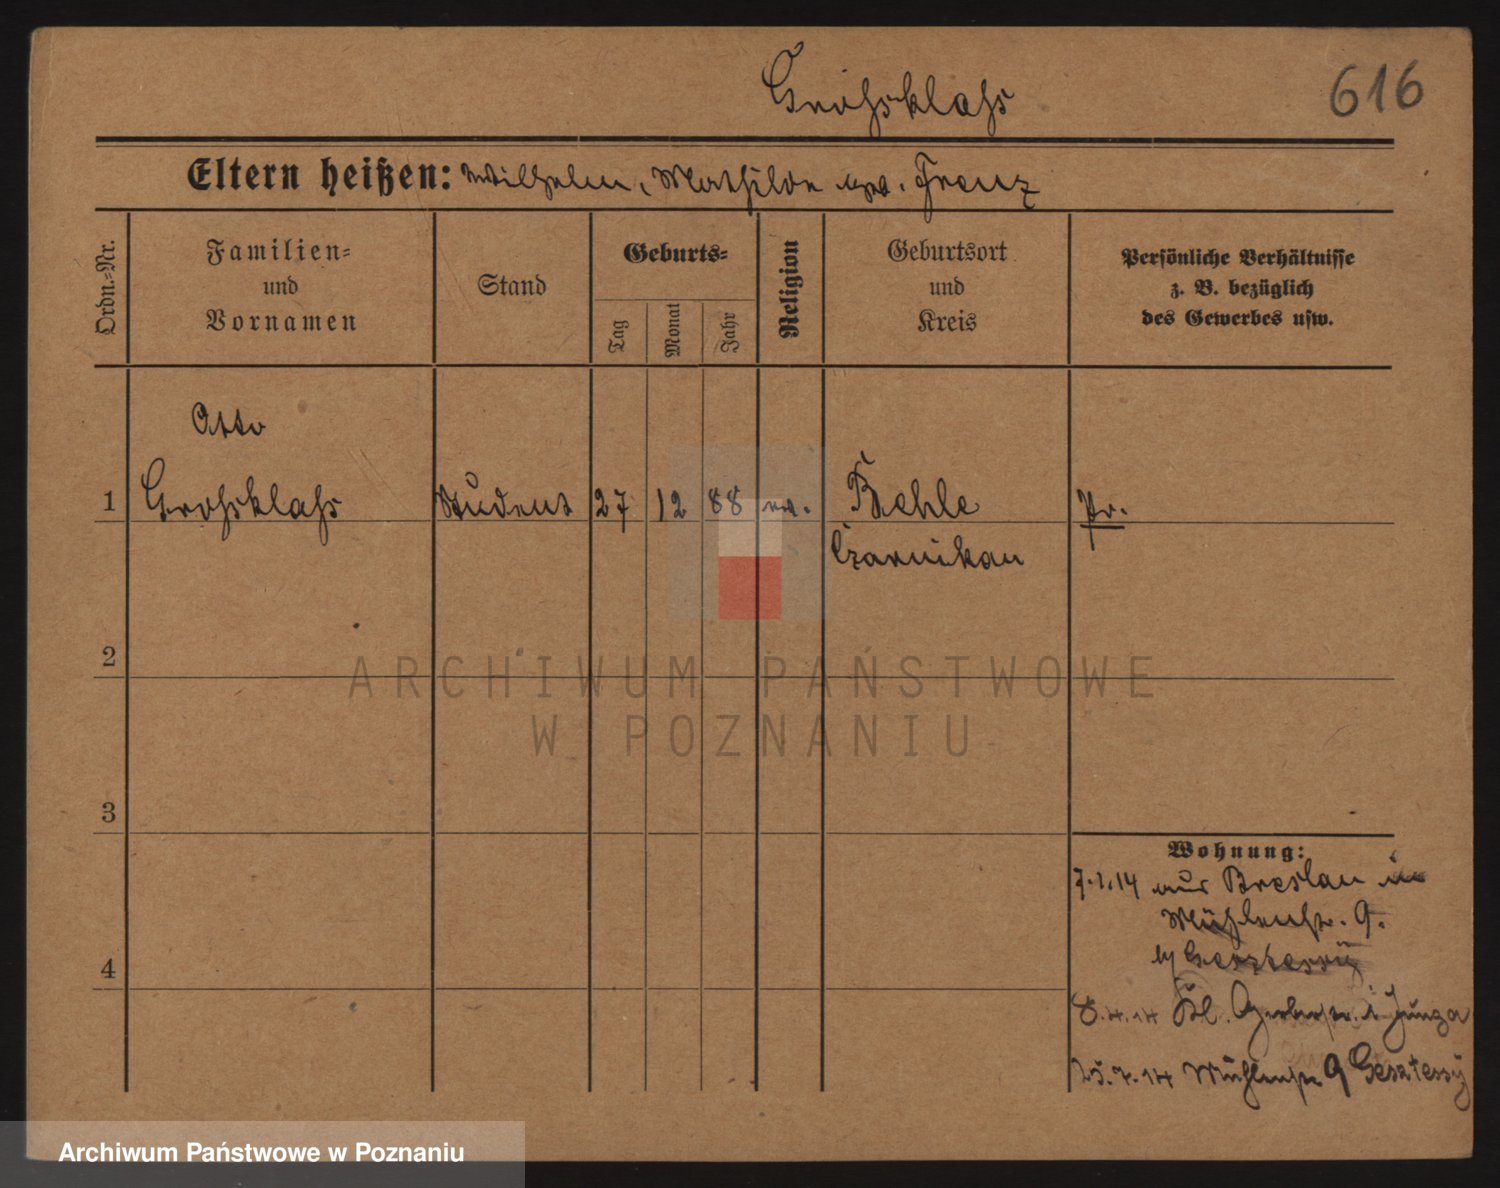 Grohsklahs
616
Eltern heißen: Wilhelm, Mathilde geb. Frenz
Ordn.-Nr.
Familien-
und
Vornamen
Stand
Geburts-
Tag
Monat
Jahr
Religion
Geburtsort
und
Kreis
Persönliche Verhältnisse
z. B. bezüglich
des Gewerbes usw.
Otto
1 Grohsklahs Student 27 12 88 ev. Behle Pr.
Czarnikau
2
3
4
Wohnung:
7.1.14 aus Breslau in
Mühlenstr. 9.
b/ Gesztessy
8.4.14 Kl. Gerberstr. Junga
25.7.14 Mühlenstr 9 Gesztessy
ARCHIWUM PAŃSTWOWE
W POZNANIU
Archiwum Państwowe w Poznaniu